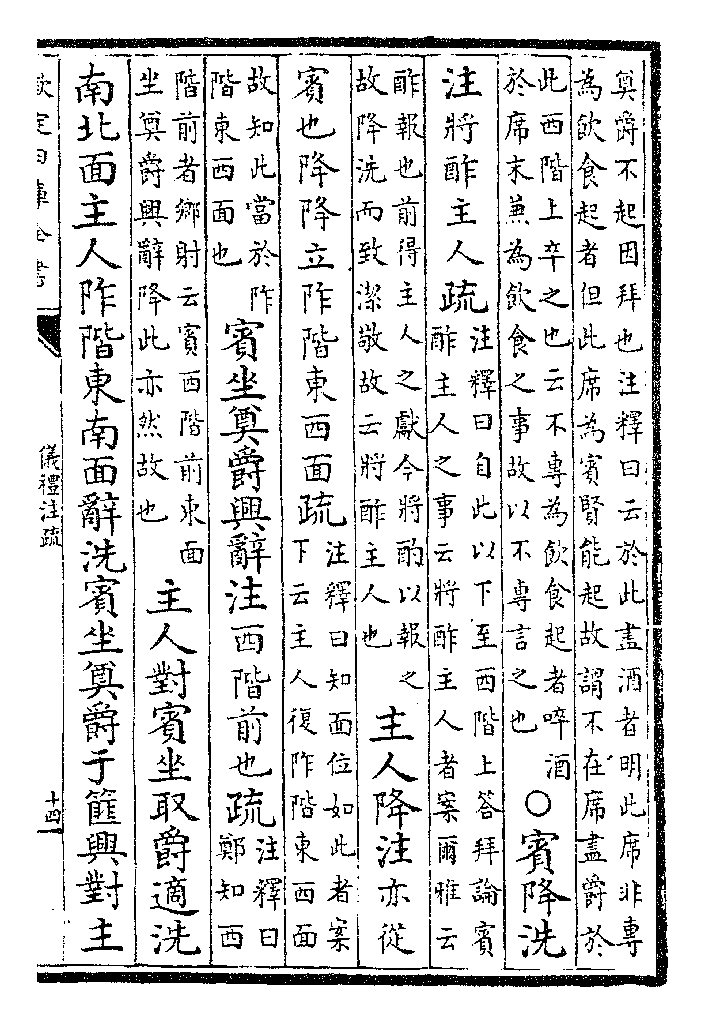 奠爵不起因拜也注釋曰云於此盡酒者明此席非專
為飲食起者但此席為賓賢能起故謂不在席盡爵於
此西階上卒之也云不專為飲食起者啐酒
於席末兼為飲食之事故以不專言之也
○賓降洗
注將酢主人疏
注釋曰自此以下至西階上答拜論賓
酢主人之事云將酢主人者案爾雅云
酢報也前得主人之獻今將酌以報之
故降洗而致潔敬故云將酢主人也
主人降注亦從
賓也降降立阼階東西面疏
注釋曰知面位如此者案
下云主人復阼階東西面
故知此當於阼
階東西面也
賓坐奠爵興辭注西階前也疏
注釋曰
鄭知西
階前者鄉射云賓西階前東面
坐奠爵興辭降此亦然故也
主人對賓坐取爵適洗
南北面主人阼階東南面辭洗賓坐奠爵于篚興對主
欽定四庫全書
儀禮注疏
十四